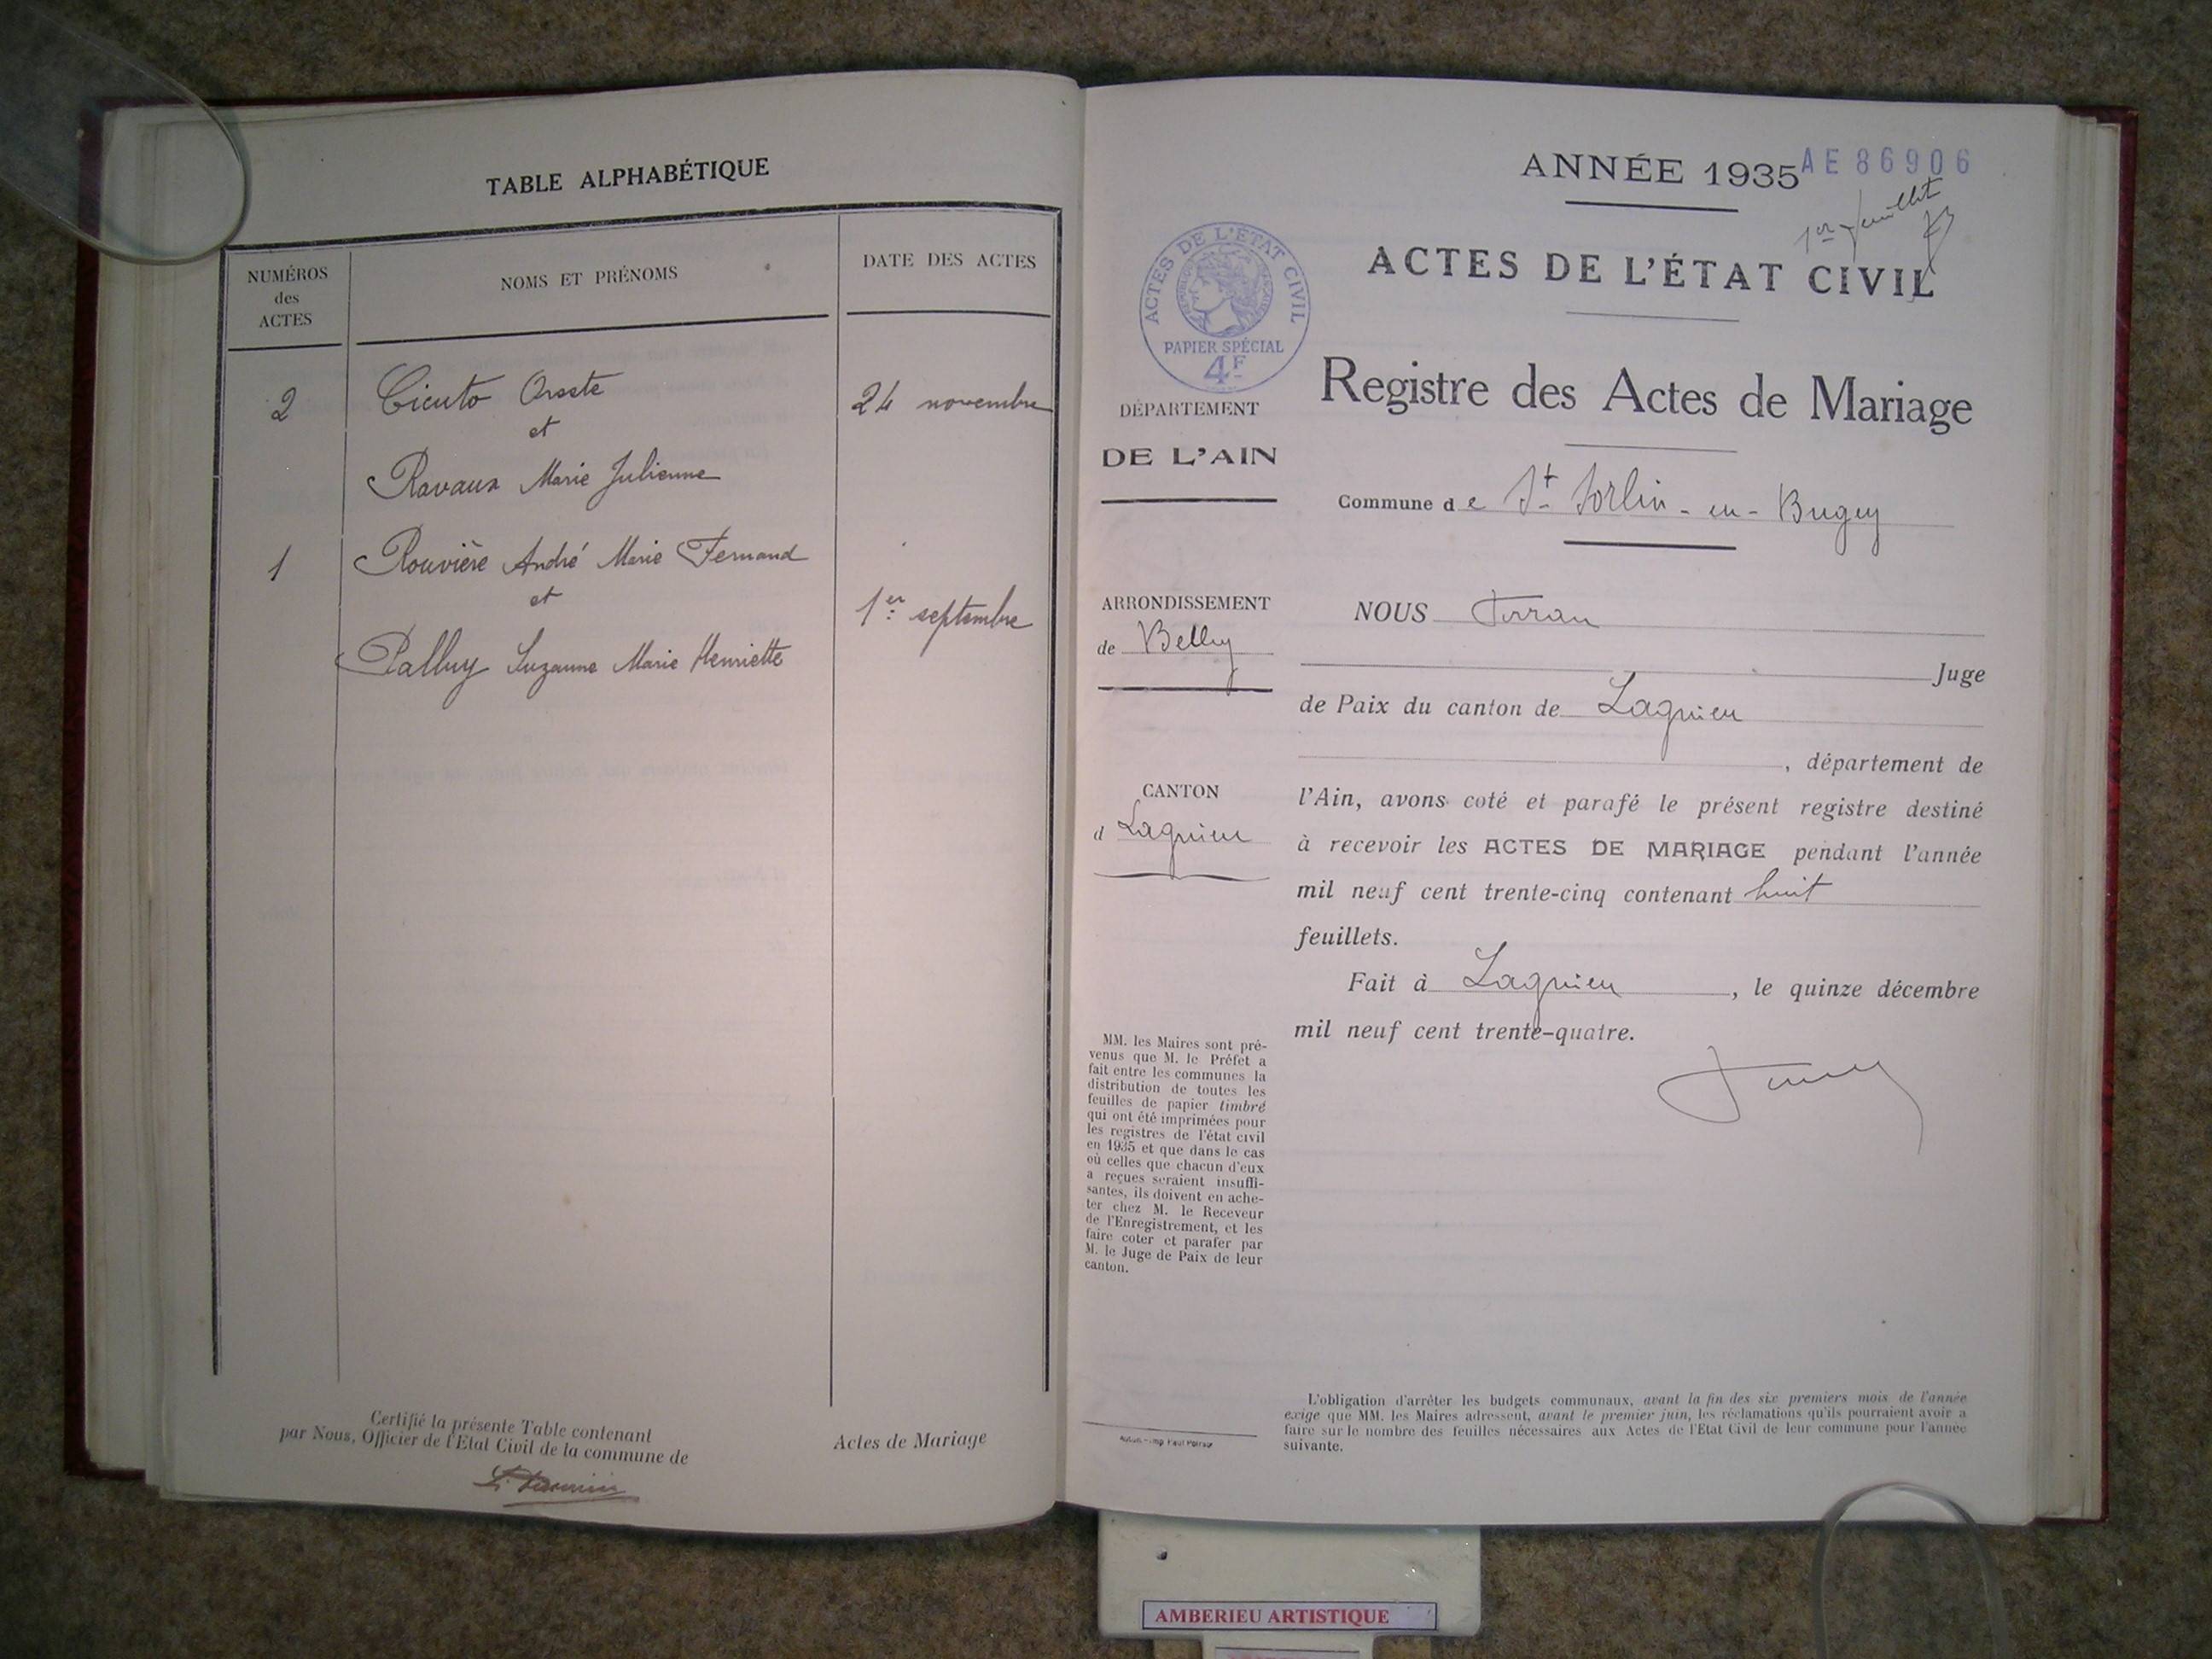 TABLE ALPHABÉTIQUE
NUMÉROS
des
ACTES
NOMS ET PRÉNOMS
DATE DES ACTES
2
Cicuto Oreste
24 novembre
et
Ravaux Marie Julienne
1
Rouvière André Marie Fernand
et
1er septembre
Palluy Suzanne Marie Henriette
Certifié la présente Table contenant
par Nous, Officier de l'Etat Civil de la commune de
Actes de Mariage
ANNÉE 1935
AE 86906
1er feuillet
ACTES DE L'ÉTAT CIVIL
RÉPUBLIQUE FRANÇAISE
PAPIER SPÉCIAL
4F
ACTES DE L'ÉTAT CIVIL
Registre des Actes de Mariage
DÉPARTEMENT
DE L'AIN
Commune de St Sorlin-en-Bugey
ARRONDISSEMENT
de Belley
CANTON
d Lagnieu
NOUS
Juge
de Paix du canton de Lagnieu
, département de
l'Ain, avons coté et parafé le présent registre destiné
à recevoir les ACTES DE MARIAGE pendant l'année
mil neuf cent trente-cinq contenant huit
feuillets.
Fait à Lagnieu, le quinze décembre
mil neuf cent trente-quatre.
MM. les Maires sont pré-
venus que M. le Préfet a
fait entre les communes la
distribution de toutes les
feuilles de papier timbré
qui ont été imprimées pour
les registres de l'état civil
en 1935 et que dans le cas
où celles que chacun d'eux
a reçues seraient insuffi-
santes, ils doivent en ache-
ter chez M. le Receveur
de l'Enregistrement, et les
faire coter et parafer par
M. le Juge de Paix de leur
canton.
L'obligation d'arrêter les budgets communaux, avant la fin des six premiers mois de l'année
exige que MM. les Maires adressent, avant le premier juin, les réclamations qu'ils pourraient avoir a
faire sur le nombre des feuilles nécessaires aux Actes de l'Etat Civil de leur commune pour l'année
suivante.
AMBERIEU ARTISTIQUE